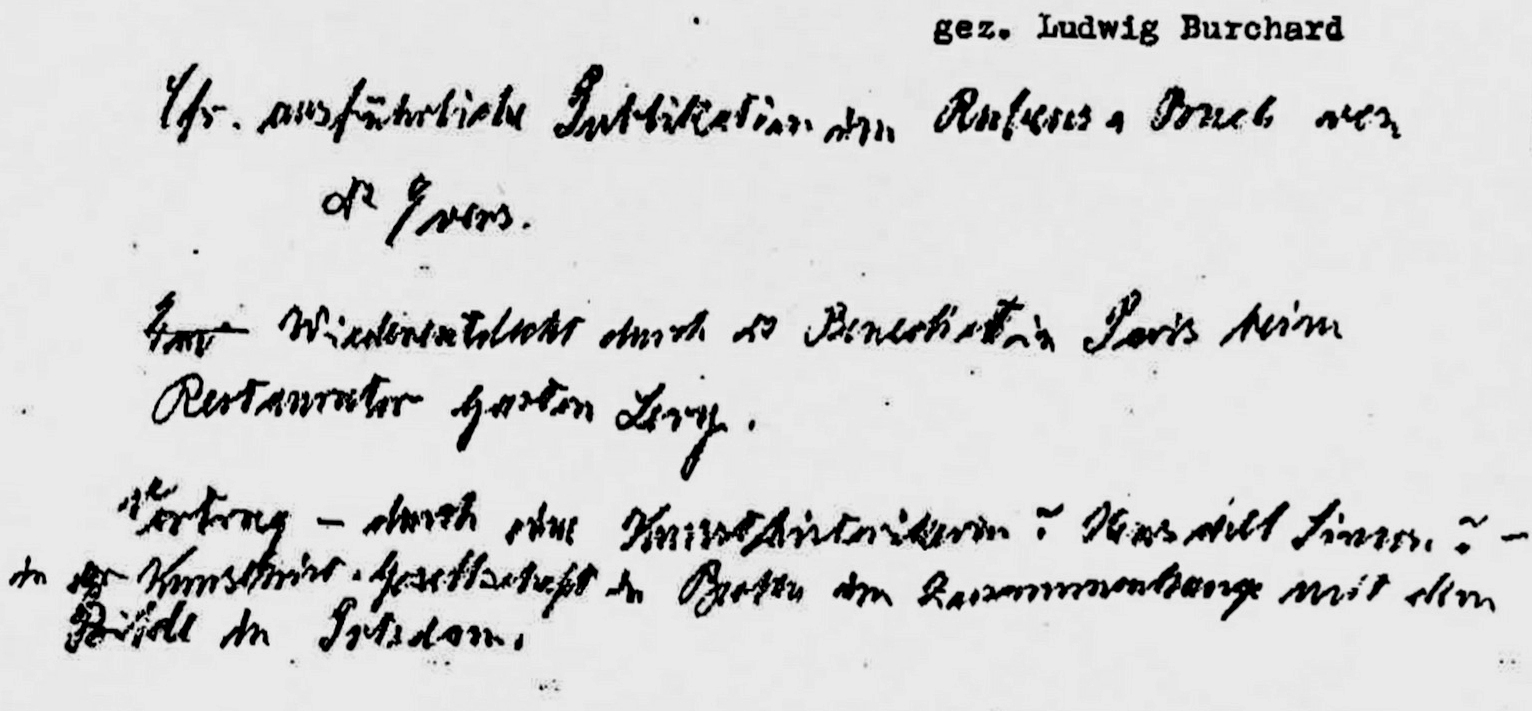 gez. Ludwig Burchard
Cfr. ausführliche Publikation im Rubens-Buch von
Dr Evers.
Wiederentdeckt durch Dr Benedict in Paris beim
Restaurator Gaston Levy.
Vortrag – durch eine Kunsthistorikerin? ? –
in der Kunsthist. Gesellschaft in Berlin im Zusammenhange mit dem
Bilde in Potsdam.